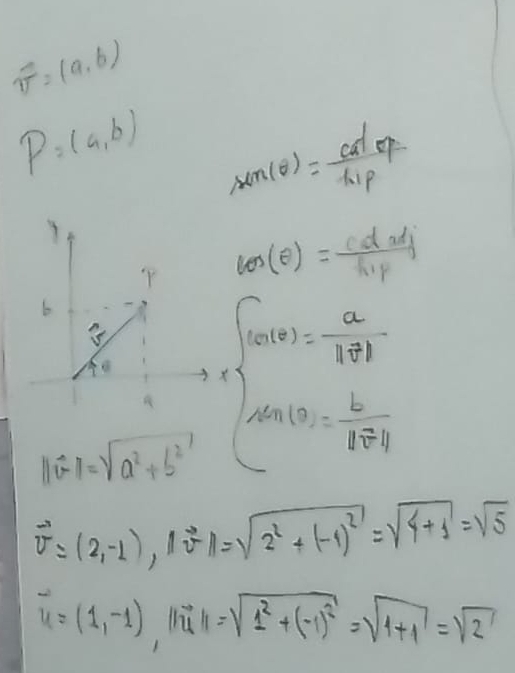 v⃗ = (a,b)
P = (a,b)
sen(θ) = cat op / hip
cos(θ) = cat adj / hip
y
P
b
v⃗
θ
a
x
cos(θ) = a / ||v⃗||
sen(θ) = b / ||v⃗||
||v⃗|| = √(a² + b²)
v⃗ = (2,-1), ||v⃗|| = √(2² + (-1)²) = √(4+1) = √5
u⃗ = (1,-1), ||u⃗|| = √(1² + (-1)²) = √(1+1) = √2